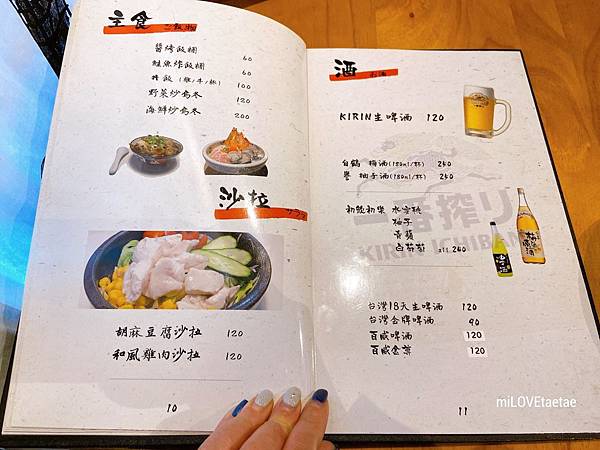 主食
ご飯物
醬烤飯糰
鮭魚炸飯糰 60
丼飯 (雞/牛/豚) 60
野菜炒烏冬 100
海鮮炒烏冬 120
200
沙拉
サラダ
胡麻豆腐沙拉 120
和風雞肉沙拉 120
10
酒
お酒
KIRIN生啤酒 120
白鶴 梅酒(180ml/杯) 250
譽 柚子酒(180ml/杯) 250
初飲初樂 水蜜桃
柚子
青蘋
白葡萄 all 260
一番搾り
KIRIN ICHIBAN
台灣18天生啤酒 120
台灣金牌啤酒 90
百威啤酒 120
百威金尊 120
11
miLOVEtaetae